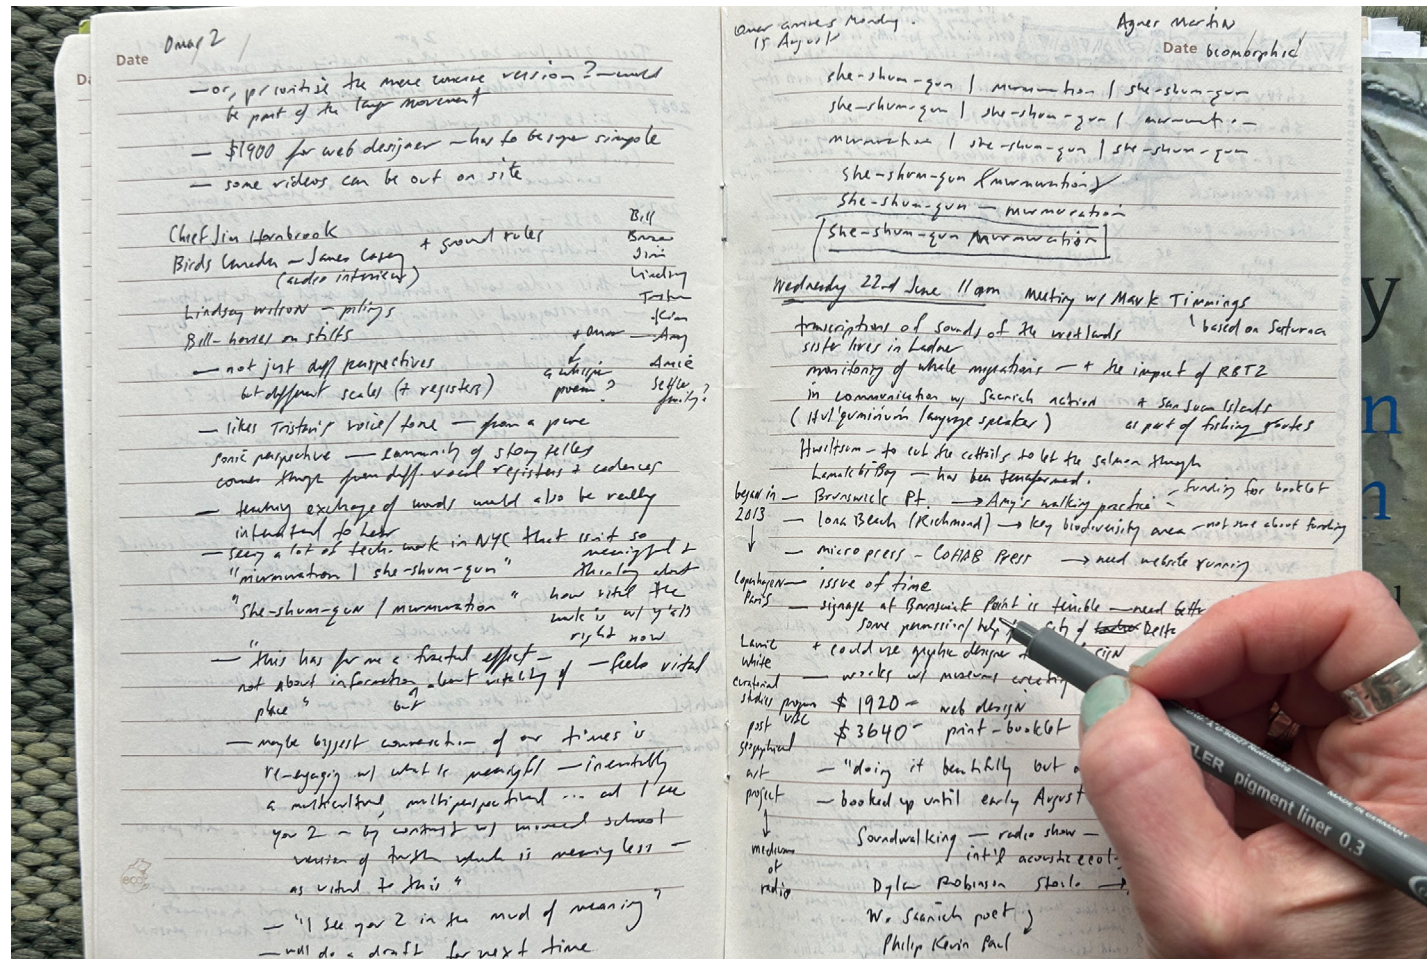 Date Omar 2
— or, prioritise the more concise version? — could
be part of the larger movement
— $1900 for web designer — has to be super simple
— some videos can be out on site
Chief Jim Hornbrook
+ ground rules
Birds Canada — James Casey
(audio interview)
Lindsay Wilson — pilings
Bill — houses on stilts
Bill
Jim
Lindsay
Tristan
Kim
— Amy
Amie
Settler
family?
+ Omar
a whisper
poem?
— not just diff perspectives
but different scales (+ registers)
— likes Tristan's voice/tone — from a pure
sonic perspective — community of story tellers
comes through from diff. vocal registers & cadences
— teaching exchange of words would also be really
interested to hear
— seeing a lot of tech. work in NYC that isn't so
meaningful &
thinking about
how vital the
work is w/ y'all
right now
"murmuration | she-shum-gun"
"she-shum-gun / murmuration"
— "this has for me a fractal effect —
not about information but about vitality of
place"
— feels vital
— maybe biggest conversation of our times is
re-engaging w/ what is meaningful — inevitably
a multicultural, multiperspectival ... and I see
you 2 — by contrast w/ school
version of truth which is meaningless —
as vital to this"
— "I see you 2 in the mud of meaning"
— will do a draft for next time
eco
Omar arrives Monday.
15 August
Agnes Martin
Date biomorphic
she-shum-gun | murmuration | she-shum-gun
she-shum-gun | she-shum-gun | murmuration
murmuration | she-shum-gun | she-shum-gun
she-shum-gun (murmuration)
she-shum-gun — murmuration
she-shum-gun murmuration
Wednesday 22nd June 11am Meeting w/ Mark Timmings
based on Saturna
transcriptions of sounds of the wetlands
sister lives in Ladner
monitoring of whale migrations — + the impact of RBT2
in communication w/ Saanich nation + San Juan Islands
(Hul'qumi'num language speaker) as part of fishing routes
Hwlitsum — to cut the cattails to let the salmon through
Lamalchi Bay — has been transformed.
began in
2013
— Brunswick Pt. → Amy's walking practice — funding for booklet
— Iona Beach (Richmond) → key biodiversity area — not sure about funding
— micro press — CoLAB Press → need website running
Copenhagen
Paris
— issue of time
— signage at Brunswick Point is terrible — need better
some permission/help City of Delta
+ could use graphic designer
— works w/ museums
Laurie
White
curatorial
studies program
UBC
post
geographical
art
project
↓
mediums
of
radio
$1920 — web design
$3640 — print — booklet
— "doing it beautifully but
— booked up until early August
Soundwalking — radio show —
int'l acoustic ecol
Dylan Robinson Stó:lō →
W. Saanich poet
Philip Kevin Paul
pigment liner 0.3
MADE IN GERMANY
y
n
n